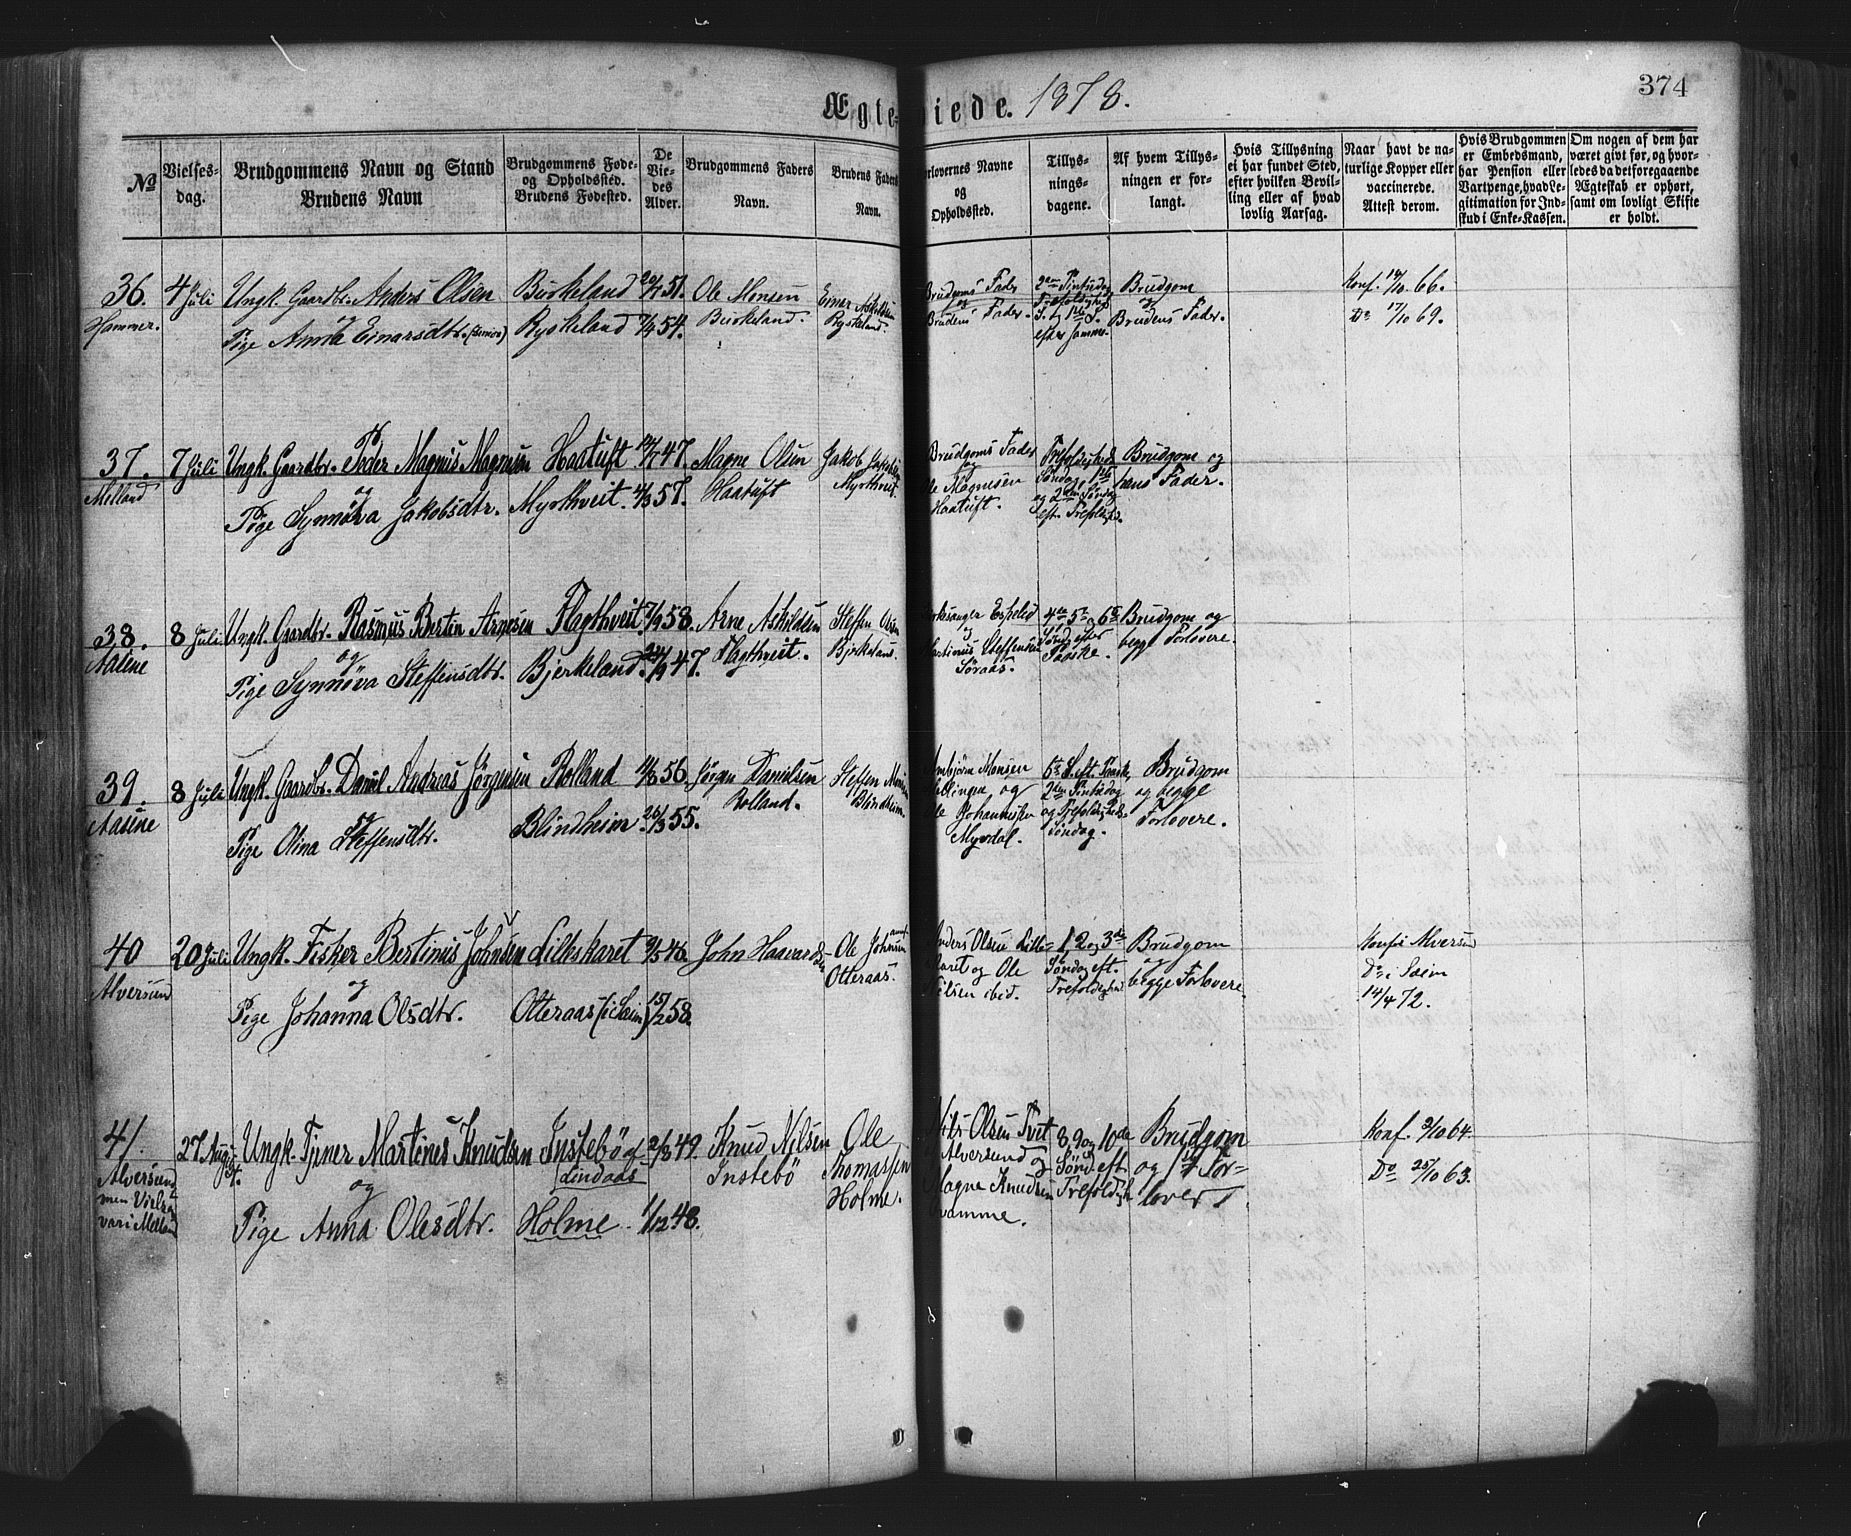 374
Ægteviede. 1878.
No
Vielses-
dag.
Brudgommens Navn og Stand
Brudens Navn
Brudgommens Føde-
og Opholdssted.
Brudens Fødested.
De
Vie-
des
Alder.
Brudgommens Faders
Navn.
Brudens Faders
Navn.
Forlovernes Navne
og
Opholdssted.
Tillys-
nings-
dagene.
Af hvem Tillys-
ningen er for-
langt.
Hvis Tillysning
ei har fundet Sted,
efter hvilken Bevil-
ling eller af hvad
lovlig Aarsag.
Naar havt de na-
turlige Kopper eller
vaccinerede.
Attest derom.
Hvis Brudgommen
er Embedsmand,
har Pension eller
Vartpenge, hvad Le-
gitimation for Ind-
skud i Enke-Kassen.
Om nogen af dem har
været givt før, og hvor-
ledes da det foregaaende
Ægteskab er ophørt,
samt om lovligt Skifte
er holdt.
36.
Hammer.
4 Juli
Ungk. Gaardbr. Anders Olsen
og
Pige Anna Einarsdtr.
Birkeland
Ryskeland
20/7 51.
7/4 54.
Ole Monsen
Birkeland.
Einar Askildsen
Ryskeland.
Brudgoms Fader
og
Brudens Fader.
2den Pintsedag
Trefoldigheds
S. og 1ste S.
efter samme.
Brudgom
og
Brudens Fader.
Konf. 14/10 66.
Do 17/10 69.
37.
Melland
7 Juli
Ungk. Gaardbr. Peder Magnus Magnesen
og
Pige Synnøva Jakobsdtr.
Haatuft
Myrthveit.
14/7 47.
4/3 57.
Magne Olsen
Haatuft
Jakob
Myrthveit.
Brudgoms Fader
og
Ole Magnesen
Haatuft.
Trefoldigheds
Søndag, 1ste
og 2den Søndag
eft. Trefoldigh.
Brudgom og
hans Fader.
38.
Aasine
8 Juli
Ungk. Gaardbr. Rasmus Bertin Arnesen
og
Pige Synnøva Steffensdtr.
Flagthveit.
Bjerkeland.
7/9 58.
24/9 47.
Arne Askildsen
Flagthveit.
Steffen Olsen
Bjerkeland.
Kirksanger Espelid
og
Martinus Steffensen
Søraas.
4de 5te og 6te
Sønd. efter
Paaske.
Brudgom og
begge Forlovere.
39.
Aasine
8 Juli
Ungk. Gaardbr. Daniel Andreas Jørgensen
og
Pige Olina Steffensdtr.
Rolland
Blindheim.
4/8 56.
26/3 55.
Jørgen Danielsen
Rolland.
Steffen Monsen
Blindheim.
Arnbjørn Monsen
og
Ole Johannesen
Myrdal.
6te S. eft. Paaske,
2den Pintsedag
og Trefoldigheds-
Søndag.
Brudgom
og begge
Forlovere.
40
Alversund
20 Juli
Ungk. Fisker Bertinus Johnsen
og
Pige Johanna Olsdtr.
Lilleskaret
Otteraas (i Sæim)
9/5 46.
15/2 58.
John Haavardsen
Ole Johnsen
Otteraas.
Anders Olsen Lille-
skaret og Ole
Nilsen ibid.
1, 2 og 3de
Søndag eft.
Trefoldighed
Brudgom
og
begge Forlovere.
Konf. i Alversund
Do i Sæim
14/4 72.
41.
Alversund,
men Vielsen
var i Melland
27 August.
Ungk. Tjener Martines Knudsen
og
Pige Anna Olesdtr.
Instebö af
Lindaas
Holme.
2/8 49.
1/12 48.
Knud Nilsen
Instebö
Ole
Thomassen
Holme.
Nils Olsen Tvet
Alversund og
Magne Knudsen
Kvamme.
8, 9 og 10de
Sønd. eft.
Trefoldigh.
Brudgom
og 1ste For-
lover
Konf. 2/10 64.
Do 25/10 63.